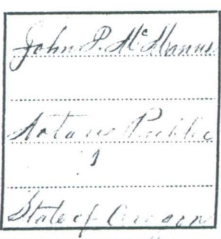 John P. McManus
Notary Public
State of Oregon